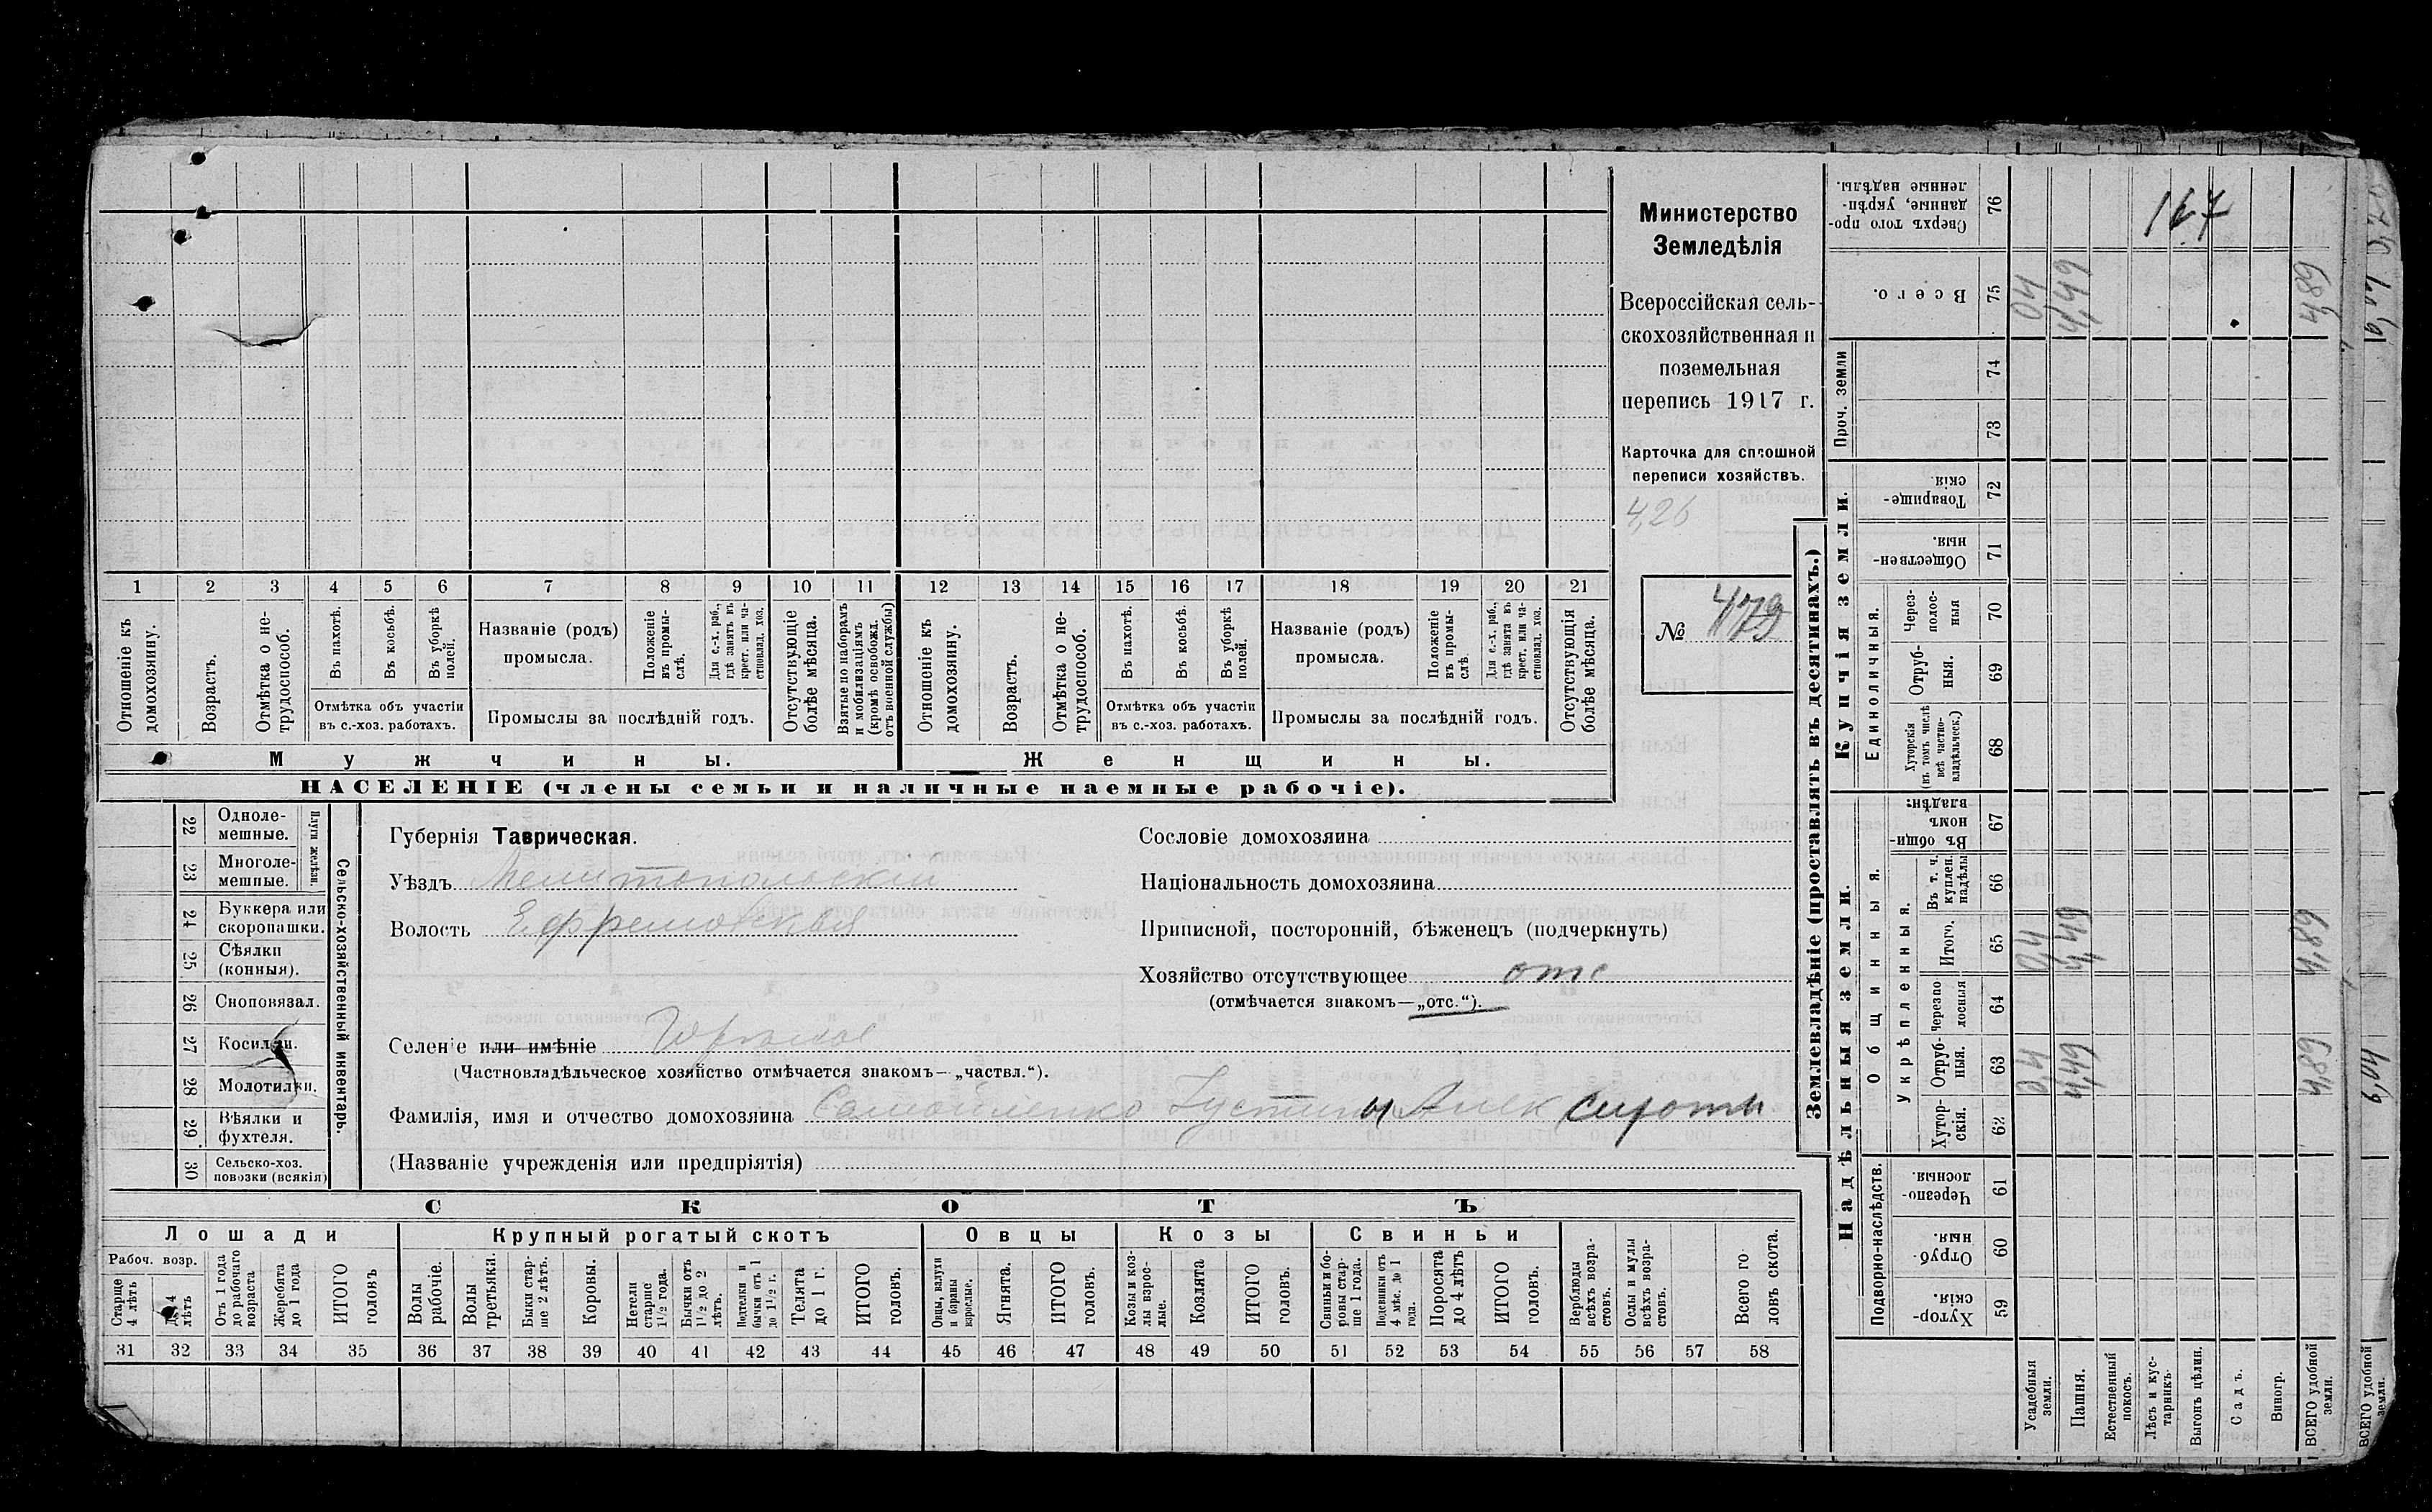 Министерство
Земледѣлія
Всероссійская сель-
скохозяйственная и
поземельная
перепись 1917 г.
Карточка для сплошной
переписи хозяйствъ.
4,26
№ 479
1 2 3 4 5 6 7 8 9 10 11 12 13 14 15 16 17 18 19 20 21
Отношеніе къ домохозяину.
Возрастъ.
Отмѣтка о не-трудоспособ.
Въ пахотѣ.
Въ косьбѣ.
Въ уборкѣ полей.
Отмѣтка объ участіи
въ с.-хоз. работахъ.
Названіе (родъ)
промысла.
Положеніе въ промы-слѣ.
Для с.-х. раб., гдѣ занятъ въ крест. или ча-стновлад. хоз.
Промыслы за послѣдній годъ.
Отсутствующіе болѣе мѣсяца.
Взятые по наборамъ и мобилизаціямъ (кромѣ освобожд. отъ военной службы)
Отношеніе къ домохозяину.
Возрастъ.
Отмѣтка о не-трудоспособ.
Въ пахотѣ.
Въ косьбѣ.
Въ уборкѣ полей.
Отмѣтка объ участіи
въ с.-хоз. работахъ.
Названіе (родъ)
промысла.
Положеніе въ промы-слѣ
Для с.-х. раб., гдѣ занята въ крест. или ча-стновлад. хоз.
Промыслы за послѣдній годъ.
Отсутствующія болѣе мѣсяца.
Мужчины.
Женщины.
НАСЕЛЕНІЕ (члены семьи и наличные наемные рабочіе).
Сельско-хозяйственный инвентарь.
Плуги желѣзн.
22 Одноле-мешные.
23 Многоле-мешные.
24 Буккера или скоропашки.
25 Сѣялки (конныя).
26 Сноповязал.
27 Косилки.
28 Молотилки.
29 Вѣялки и фухтеля.
30 Сельско-хоз. повозки (всякія)
Губернія Таврическая.
Уѣздъ Мелитопольскій
Волость Ефремовская
Селеніе или имѣніе
(Частновладѣльческое хозяйство отмѣчается знакомъ—„частвл.“).
Фамилія, имя и отчество домохозяина Самойленко и Алек Сироты
(Названіе учрежденія или предпріятія)
Сословіе домохозяина
Національность домохозяина
Приписной, посторонній, бѣженецъ (подчеркнуть)
Хозяйство отсутствующее отс
(отмѣчается знакомъ—„отс.“).
СКОТЪ
Лошади
Крупный рогатый скотъ
Овцы
Козы
Свиньи
Рабоч. возр.
Старше 4 лѣтъ
До 4 лѣтъ
Отъ 1 года до рабочаго возраста
Жеребята до 1 года
ИТОГО головъ
Волы рабочіе.
Волы третьяки.
Быки стар-ше 2 лѣтъ.
Коровы.
Нетели старше 1½ года.
Бычки отъ 1½ до 2 лѣтъ.
Подтелки и бычки отъ 1 до 1½ г.
Телята до 1 г.
ИТОГО головъ.
Овцы, валухи и бараны взрослые.
Ягнята.
ИТОГО головъ.
Козы и коз-лы взрос-лые.
Козлята
ИТОГО головъ.
Свиньи и бо-ровы стар-ше 1 года.
Подсвинки отъ 4 мѣс. до 1 года.
Поросята до 4 лѣтъ
ИТОГО головъ.
Верблюды всѣхъ возра-стовъ.
Ослы и мулы всѣхъ возра-стовъ.
Всего го-ловъ скота.
31 32 33 34 35 36 37 38 39 40 41 42 43 44 45 46 47 48 49 50 51 52 53 54 55 56 57 58
Землевладѣніе (проставлять въ десятинахъ.)
Надѣльныя земли.
Купчія земли.
Проч. земли
Подворно-наслѣдств.
Общинныя.
Укрѣпленныя.
Единоличныя.
76 Сверхъ того про-данные, укрѣп-ленные надѣлы.
75 Всего. 04 4,49 4,89
74
73
72 Товарище-скія
71 Обществен-ныя.
70 Через-полос-ныя
69 Отруб-ныя.
68 Хуторскія (въ томъ числѣ всѣ частно-владѣльческ.)
67 Въ общин-номъ владѣн.
66 Въ т. ч. куплен. надѣлы
65 Итого. 0,4 4,49 4,89
64 Черезпо-лосныя
63 Отруб-ныя. 0,4 4,49 4,89
62 Хутор-скія.
61 Черезпо-лосныя
60 Отруб-ныя.
59 Хутор-скія
Усадебныя земли.
Пашня.
Естественный покосъ.
Лѣсъ и кус-тарникъ
Выгонъ цѣлин.
Садъ.
Виногр.
ВСЕГО удобной земли.
ВСЕГО удобной земли.